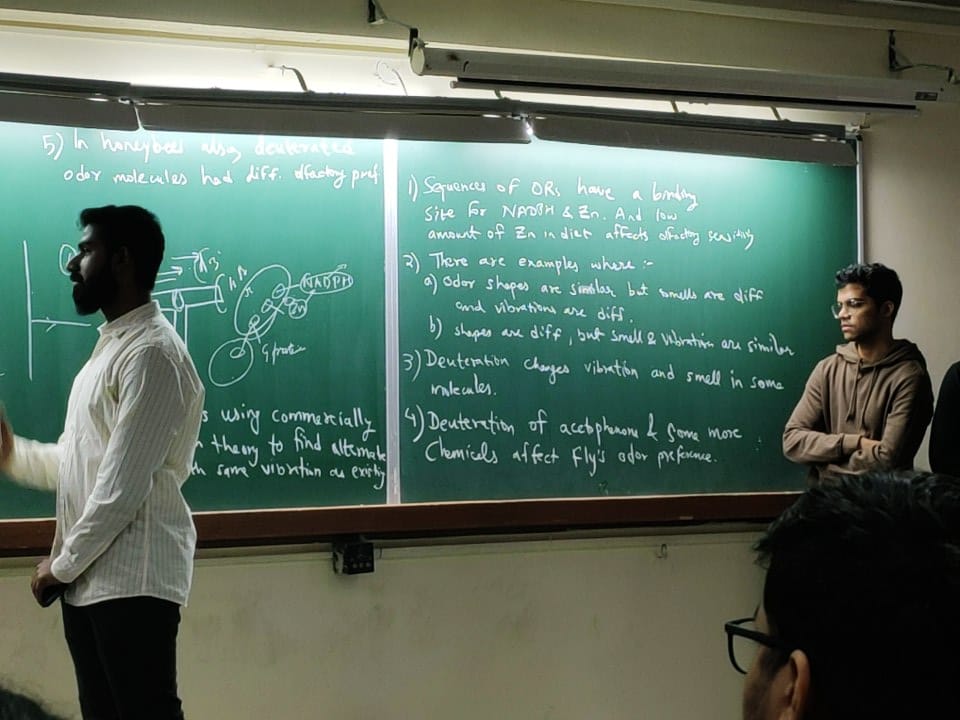 5) In honeybees also, deuterated
odor molecules had diff. olfactory pref.
NADPH
Zn
G protein
s using commercially
theory to find alternate
same vibration as existing
1) Sequences of ORs have a binding
Site for NADBH & Zn. And low
amount of Zn in diet affects olfactory sensitivity
2) There are examples where :-
a) Odor shapes are similar but smells are diff
and vibrations are diff.
b) shapes are diff, but smell & vibration are similar
3) Deuteration changes vibration and smell in some
molecules.
4) Deuteration of acetophenone & some more
Chemicals affect Fly's odor preference.